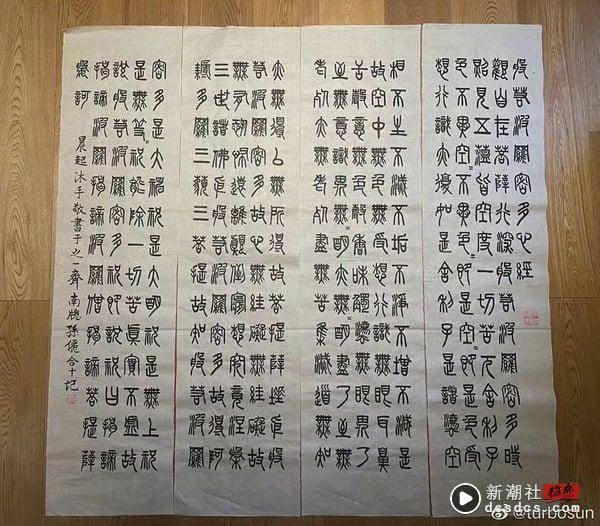 般若波羅密多心經
觀自在菩薩行深般若波羅密多時
照見五蘊皆空度一切苦厄舍利子
色不異空=不異色=即是空=即是色受
想行識亦復如是舍利子是諸法空
相不生不滅不垢不淨不增不減是
故空中無色無受想行識無眼耳鼻
舌身意無色聲香味觸法無眼界乃
至無意識界無無明亦無無明盡乃至無
老死亦無老死盡無苦集滅道無知
亦無得以無所得故菩提薩埵依般
若波羅密多故心無罣礙無罣礙故
無有恐怖遠離顛倒夢想究竟涅槃
三世諸佛依般若波羅密多故得阿
耨多羅三藐三菩提故知般若波羅
密多是大神呪是大明呪是無上呪
是無等=呪能除一切苦真實不虛故
說般若波羅密多呪即說呪曰揭諦
揭諦波羅揭諦波羅僧揭諦菩提薩
婆訶
晨起沐手敬書于之一齋南牕孫儷合十記
新潮社
@turbosun